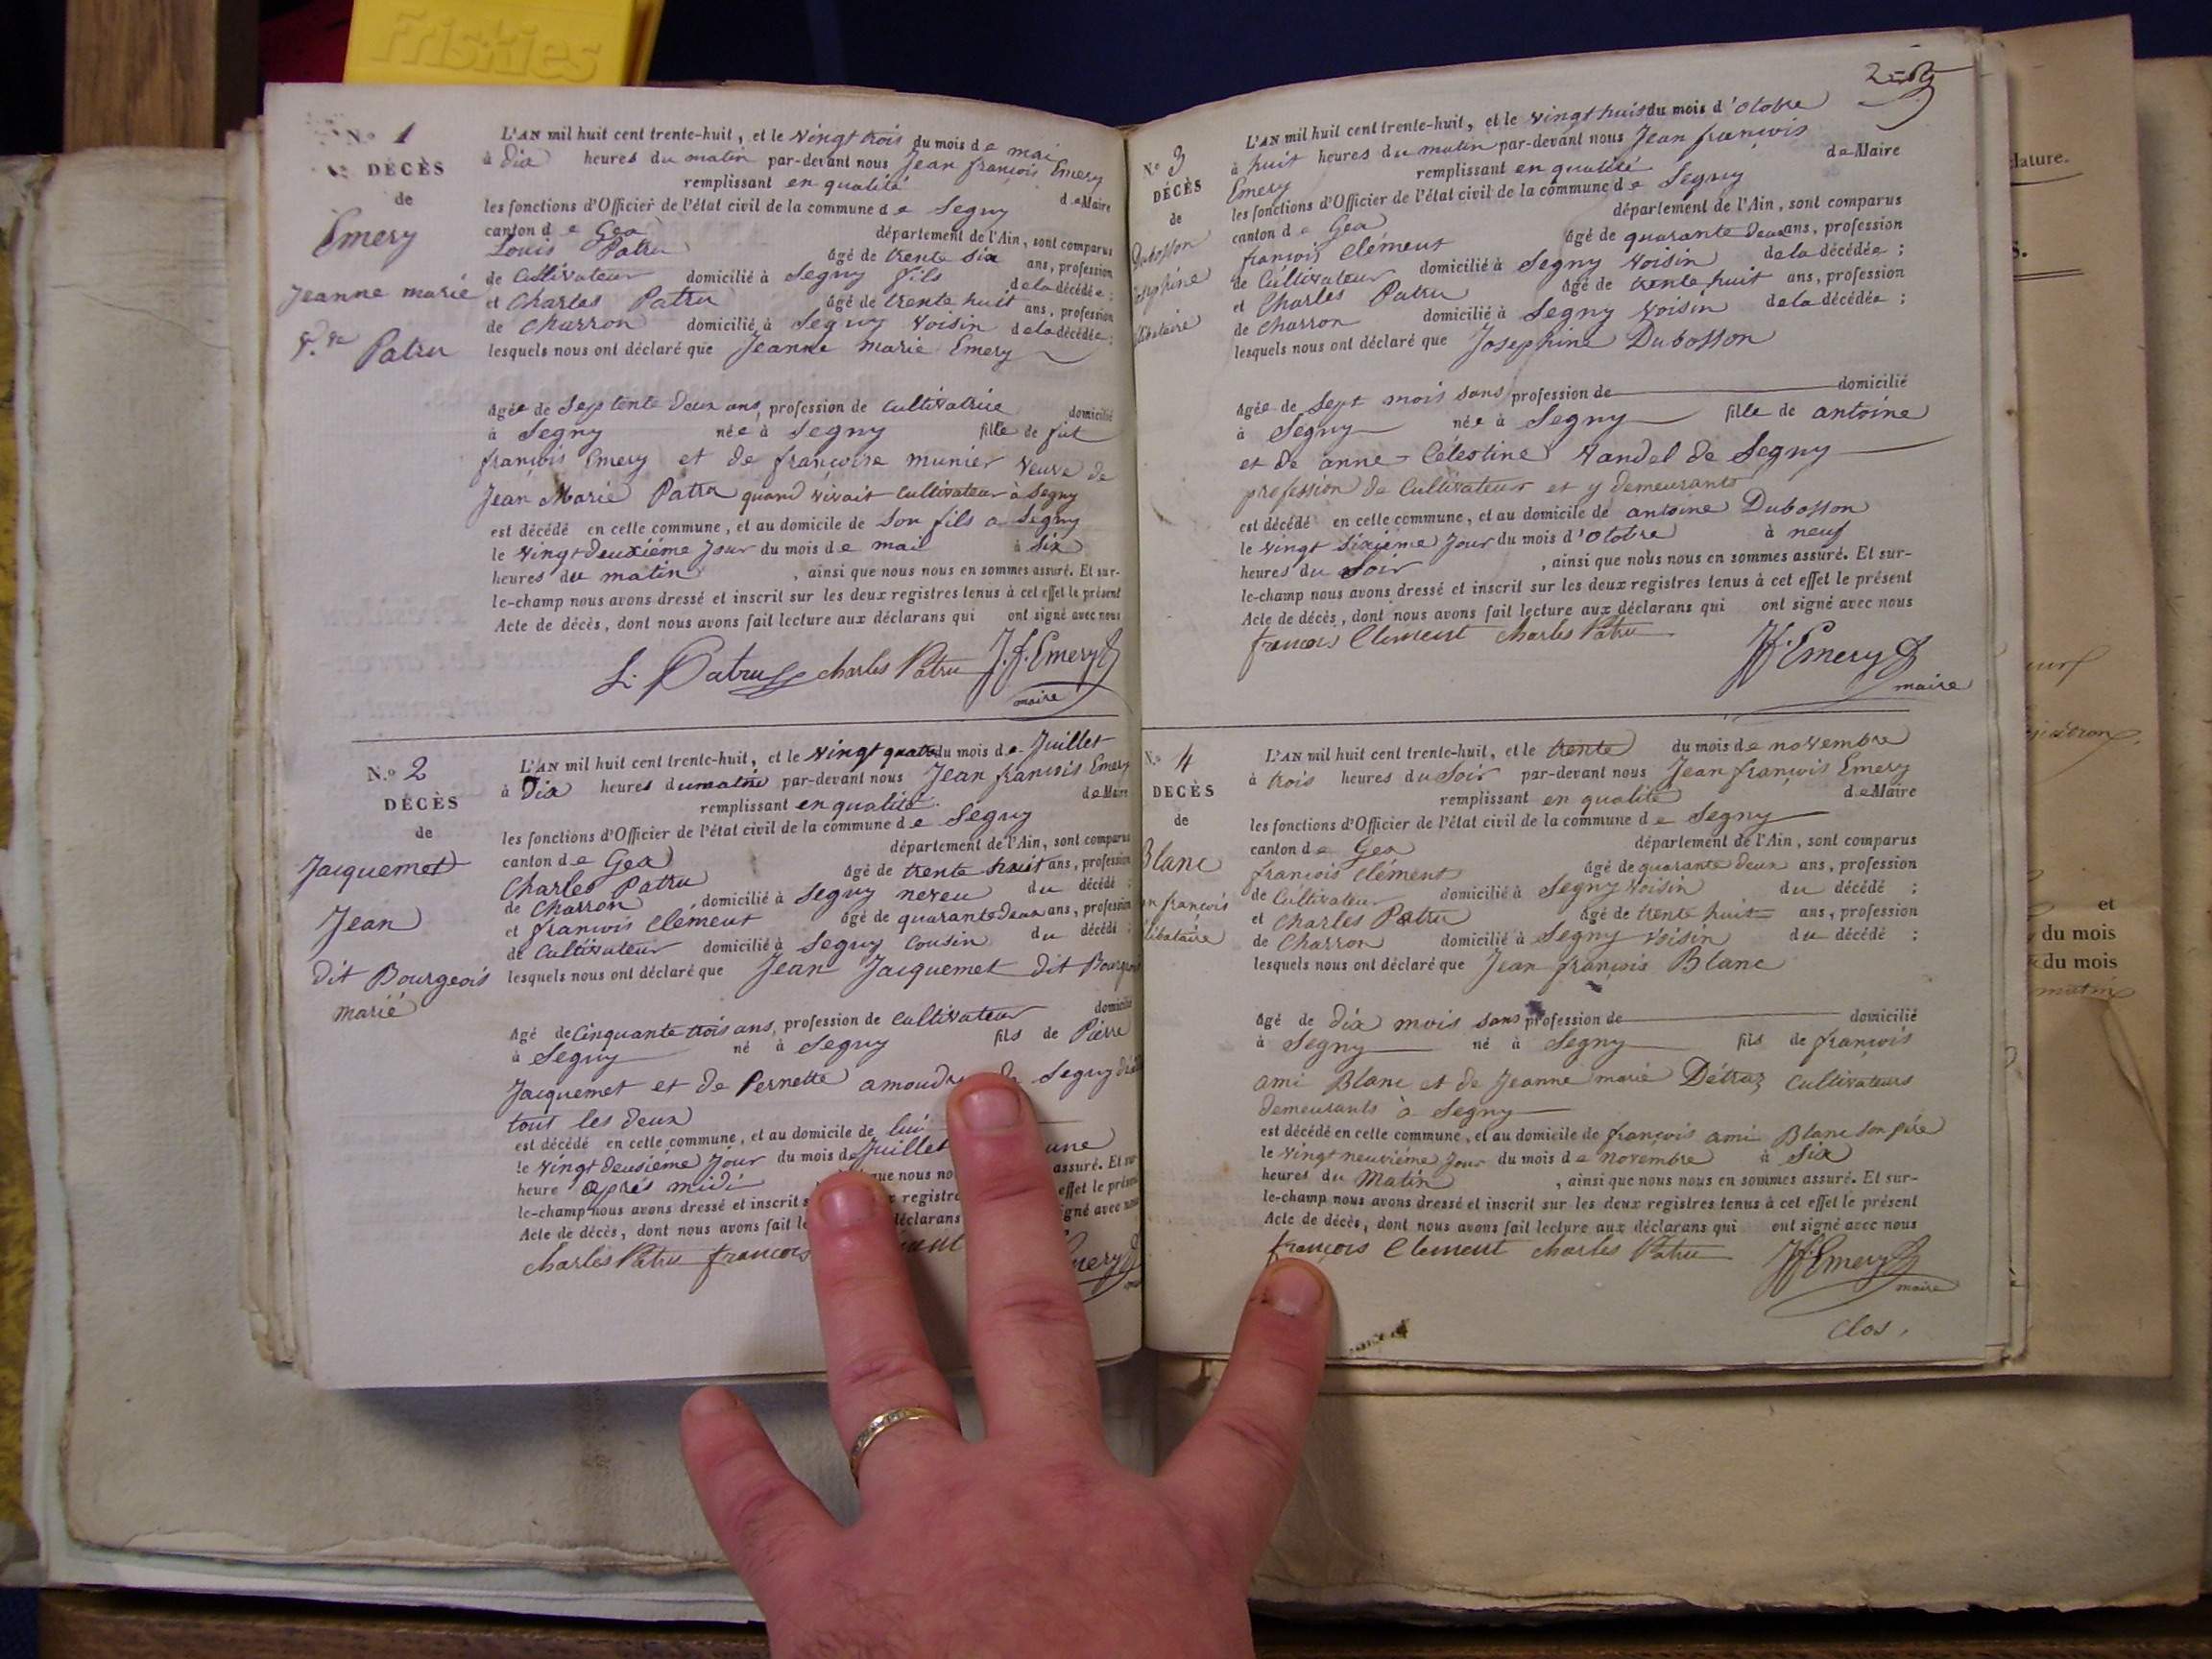 Friskies
N.º 1
DÉCÈS
de
Emery
Jeanne marie
Patru
L'AN mil huit cent trente-huit, et le vingt trois du mois de mai
à dix heures du matin par-devant nous Jean françois Emery
remplissant en qualité de Maire
les fonctions d'Officier de l'état civil de la commune de Segny
canton de Gex département de l'Ain, sont comparus
Louis Patru âgé de trente six ans, profession
de Cultivateur domicilié à Segny fils de la décédée ;
et Charles Patru âgé de trente huit ans, profession
de Charron domicilié à Segny voisin de la décédée ;
lesquels nous ont déclaré que Jeanne marie Emery
âgée de Septente deux ans, profession de cultivatrice domicilié
à Segny née à Segny fille de fut
françois Emery et de françoise munier veuve de
Jean Marie Patru quand vivait cultivateur à Segny
est décédé en cette commune, et au domicile de Son fils a Segny
le vingt deuxiéme Jour du mois de mai à Six
heures du matin , ainsi que nous nous en sommes assuré. Et sur-
le-champ nous avons dressé et inscrit sur les deux registres tenus à cet effet le présent
Acte de décès, dont nous avons fait lecture aux déclarans qui ont signé avec nous
L. Patru charles Patru J. f. Emery
maire
N.º 2
DÉCÈS
de
Jacquemet
Jean
dit Bourgeois
marié
L'AN mil huit cent trente-huit, et le vingt quatre du mois de Juillet
à Dix heures du matin par-devant nous Jean francois Emery
remplissant en qualité de Maire
les fonctions d'Officier de l'état civil de la commune de Segny
canton de Gex département de l'Ain, sont comparus
Charles Patru âgé de trente huit ans, profession
de Charron domicilié à Segny neveu du décédé ;
et francois Clément âgé de quarante deux ans, profession
de Cultivateur domicilié à Segny Cousin du décédé ;
lesquels nous ont déclaré que Jean Jacquemet dit Bourgeois
âgé de Cinquante trois ans, profession de cultivateur domicilié
à Segny né à Segny fils de Pierre
Jacquemet et de Pernette Segny
tout les deux
est décédé en cette commune, et au domicile de lui
le vingt deusiéme Jour du mois de Juillet une
heure après midi que nous nous assuré. Et sur
le-champ nous avons dressé et inscrit registre effet le présent
Acte de décès, dont nous avons fait déclarans signé avec nous
charles Patru francois Emery
2
N.º 3
DÉCÈS
de
Dubosson
L'AN mil huit cent trente-huit, et le vingt huit du mois d'Otobre
à huit heures du matin par-devant nous Jean françois
Emery remplissant en qualité de Maire
les fonctions d'Officier de l'état civil de la commune de Segny
canton de Gex département de l'Ain, sont comparus
françois Clément âgé de quarante deux ans, profession
de Cultivateur domicilié à Segny voisin de la décédée ;
et Charles Patru âgé de trente huit ans, profession
de Charron domicilié à Segny voisin de la décédée ;
lesquels nous ont déclaré que Josephine Dubosson
âgée de Sept mois sans profession de domicilié
à Segny née à Segny fille de antoine
et de anne Célestine Vandel de Segny
profession de Cultivateur et y demeurants
est décédé en cette commune, et au domicile de antoine Dubosson
le vingt Sixieme Jour du mois d'Otobre à neuf
heures du Soir , ainsi que nous nous en sommes assuré. Et sur-
le-champ nous avons dressé et inscrit sur les deux registres tenus à cet effet le présent
Acte de décès, dont nous avons fait lecture aux déclarans qui ont signé avec nous
francois Clement charles Patru Jf. Emery
maire
N.º 4
DÉCÈS
de
Blanc
françois
L'AN mil huit cent trente-huit, et le trente du mois de novembre
à trois heures du Soir par-devant nous Jean françois Emery
remplissant en qualité de Maire
les fonctions d'Officier de l'état civil de la commune de Segny
canton de Gex département de l'Ain, sont comparus
francois Clément âgé de quarante deux ans, profession
de Cultivateur domicilié à Segny voisin du décédé ;
et Charles Patru âgé de trente huit ans, profession
de Charron domicilié à Segny voisin du décédé ;
lesquels nous ont déclaré que Jean françois Blanc
âgé de dix mois sans profession de domicilié
à Segny né à Segny fils de françois
ami Blanc et de Jeanne marie Détraz Cultivateurs
demeurants à Segny
est décédé en cette commune, et au domicile de françois ami Blanc Son père
le vingt neuviéme Jour du mois de novembre à Six
heures du Matin , ainsi que nous nous en sommes assuré. Et sur-
le-champ nous avons dressé et inscrit sur les deux registres tenus à cet effet le présent
Acte de décès, dont nous avons fait lecture aux déclarans qui ont signé avec nous
françois Clement charles Patru Jf. Emery
maire
Clos.
et
du mois
du mois